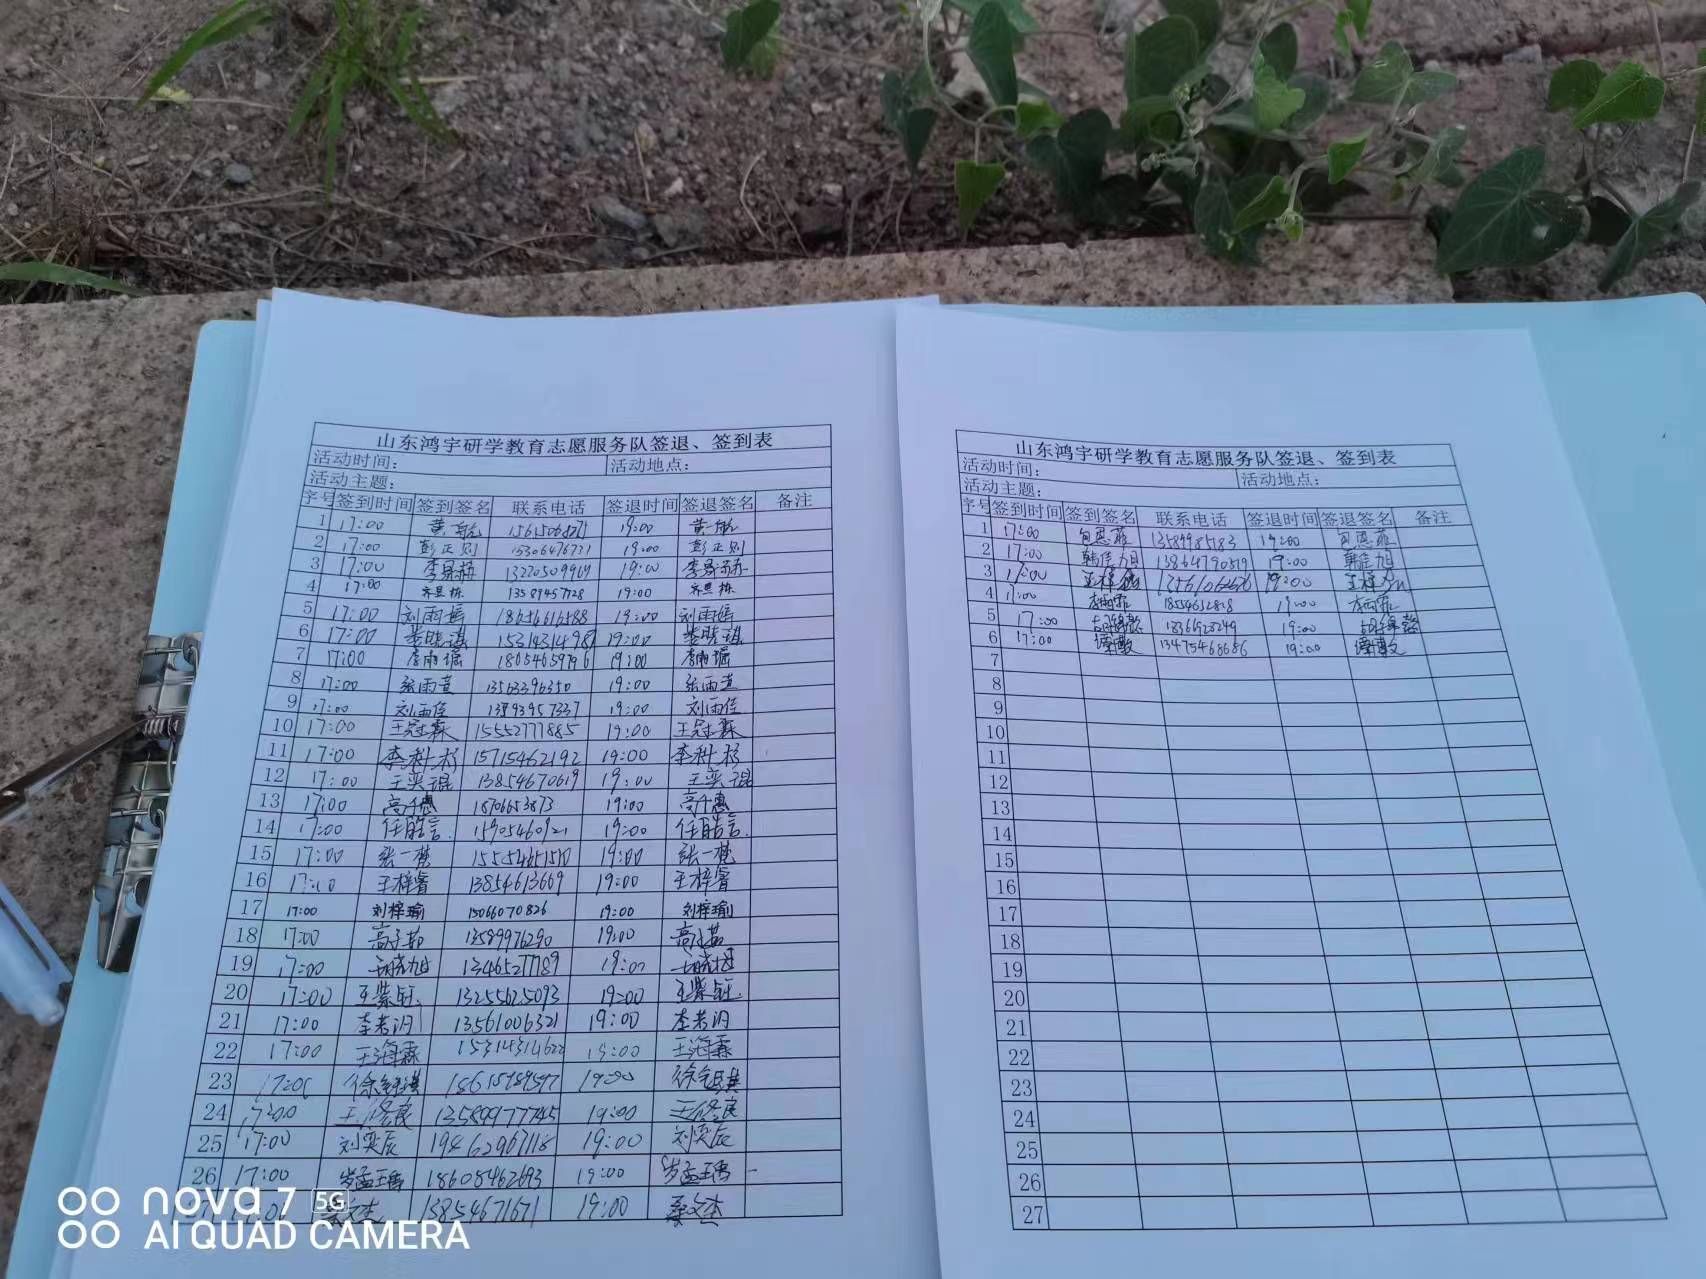 山东鸿宇研学教育志愿服务队签退、签到表
活动时间： 活动地点：
活动主题：
序号 签到时间 签到签名 联系电话 签退时间 签退签名 备注
1 17:00 19:00
2 17:00 彭正则 15306476731 19:00 彭正则
3 17:00 13220509969 19:00
4 17:00 13589457728 19:00
5 17:00 刘雨婷 18654616588 19:00 刘雨婷
6 17:00 15314314987 19:00
7 17:00 18654659796 19:00
8 17:00 13563396350 19:00
9 17:00 刘雨佳 19:00 刘雨佳
10 17:00 王冠霖 15552777885 19:00 王冠霖
11 17:00 李科杉 15715462192 19:00 李科杉
12 17:00 王奕琨 13854670619 19:00 王奕琨
13 17:00 高千惠 19:00 高千惠
14 17:00 任皓言 19:00 任皓言
15 17:00 张一梵 19:00 张一梵
16 17:00 王梓睿 13854613669 19:00 王梓睿
17 17:00 刘梓瑜 15066070826 19:00 刘梓瑜
18 17:00 高子茹 13589976290 19:00 高子茹
19 17:00 13465277789 19:00
20 17:00 王紫钰 13255625093 19:00 王紫钰
21 17:00 李若汐 13561006321 19:00 李若汐
22 17:00 王海霖 15314314622 19:00 王海霖
23 17:00 19:00
24 17:00 王修良 13589977745 19:00 王修良
25 17:00 刘奕辰 19462967118 19:00 刘奕辰
26 17:00 18605462693 19:00
27 13854671671 19:00
山东鸿宇研学教育志愿服务队签退、签到表
活动时间： 活动地点：
活动主题：
序号 签到时间 签到签名 联系电话 签退时间 签退签名 备注
1 17:00 13589985183 19:00
2 17:00 韩佳旭 13864790519 19:00 韩佳旭
3 17:00 19:00
4 17:00 19:00
5 17:00 19:00
6 17:00 13475468686 19:00
7
8
9
10
11
12
13
14
15
16
17
18
19
20
21
22
23
24
25
26
27
nova 7 5G
AI QUAD CAMERA